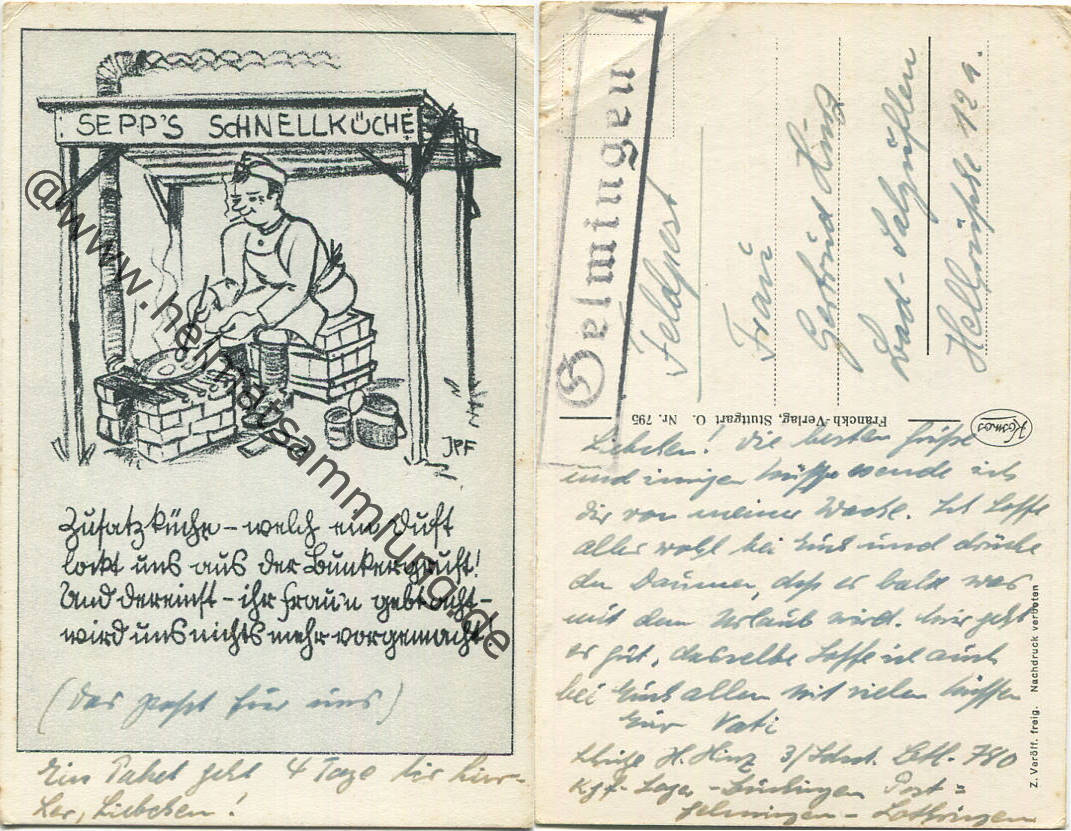 SEPP'S SCHNELLKÜCHE
JPF
Zusatzküche – welch ein Duft
lockt uns aus der Bunkergruft!
Und dereinst – ihr Frau'n gebt acht –
wird uns nichts mehr vorgemacht!
(Das paßt für uns)
Ein Paket geht 4 Tage hier hin-
ter, Liebchen!
@www.heimatsammlung.de
Salmingen
Feldpost
Frau
Gertrud Hinz
Bad-Salzuflen
12 a.
Franckh-Verlag, Stuttgart O. Nr. 795
Kosmos
Liebchen! Die besten Grüße
und innigen Küsse sende ich
Dir von meiner Wache. Ich hoffe
alles wohl bei Euch und drücke
den Daumen, daß es bald was
mit dem Urlaub wird. Mir geht
es gut, dasselbe hoffe ich auch
bei Euch allen. Mit vielen Küssen
Euer Vati
H. Hinz 3/Schtz. Batl. 780
Kgf.-Lager- Post=
Lothringen
Z. Veröff. freig. Nachdruck verboten